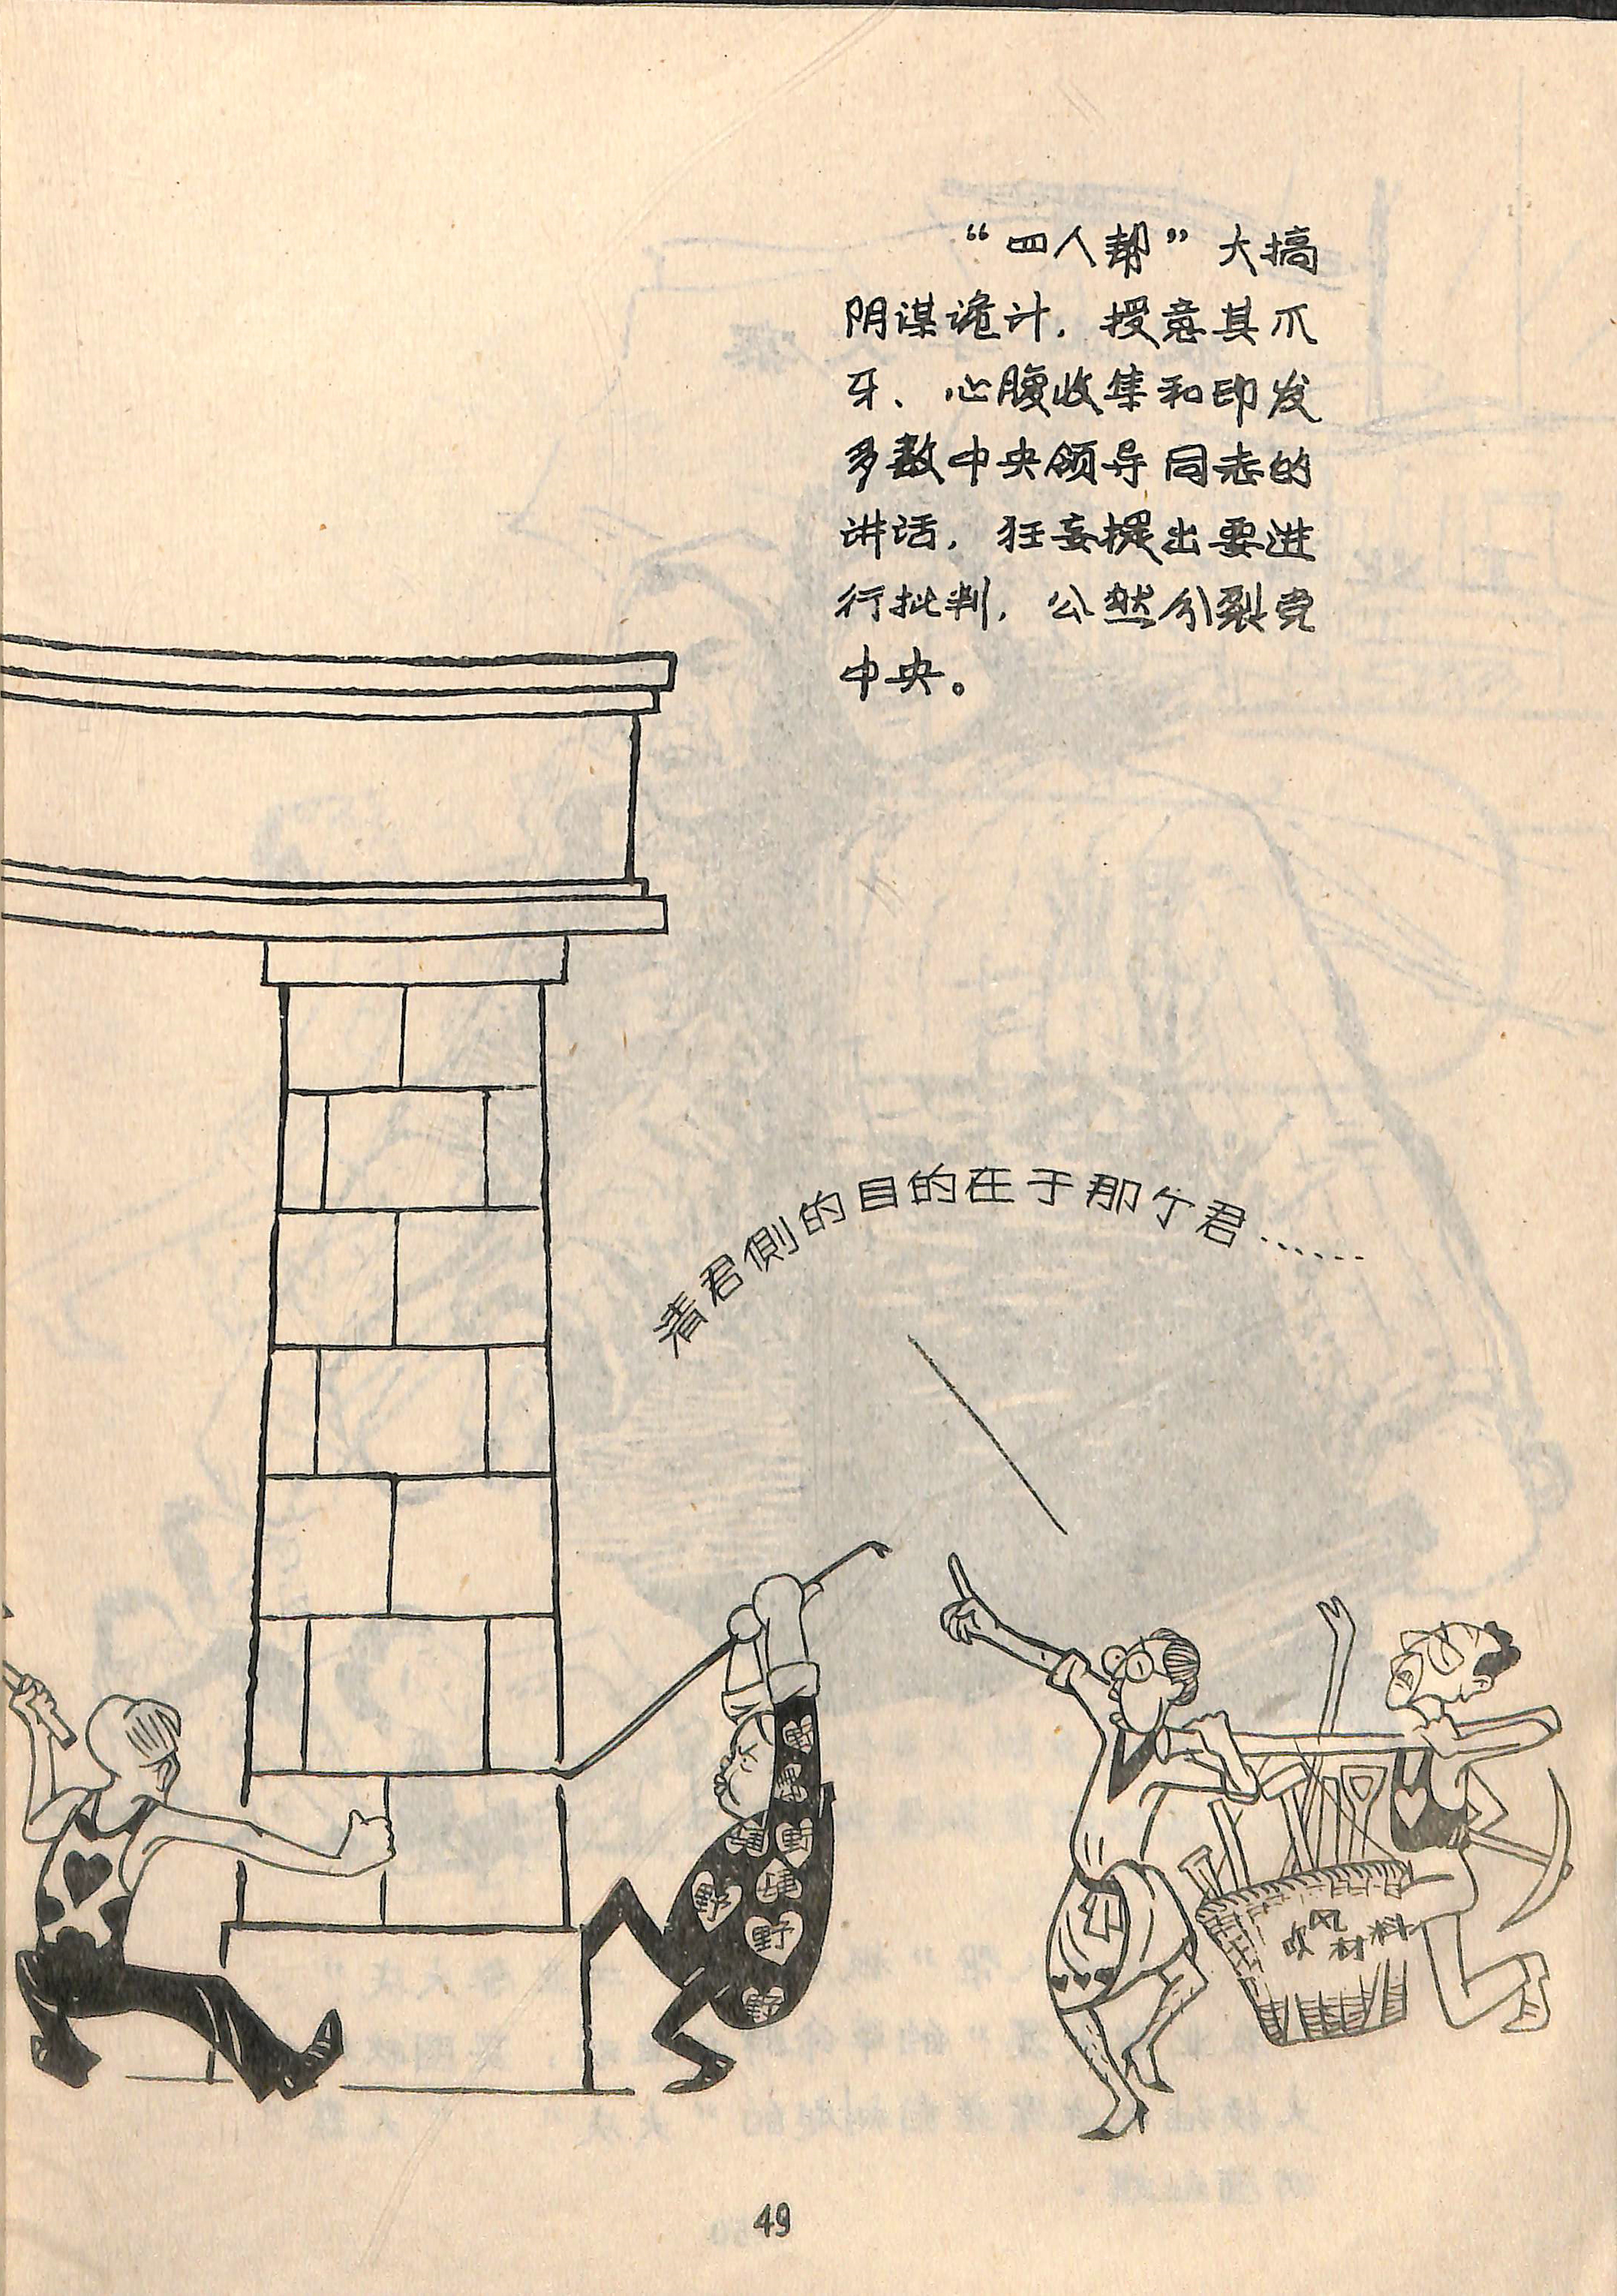 “四人帮”大搞
阴谋诡计，授意其爪
牙、心腹收集和印发
多数中央领导同志的
讲话，狂妄提出要进
行批判，公然分裂党
中央。
清君侧的目的在于那个君……
野
野
野
野
野
吹风材料
49